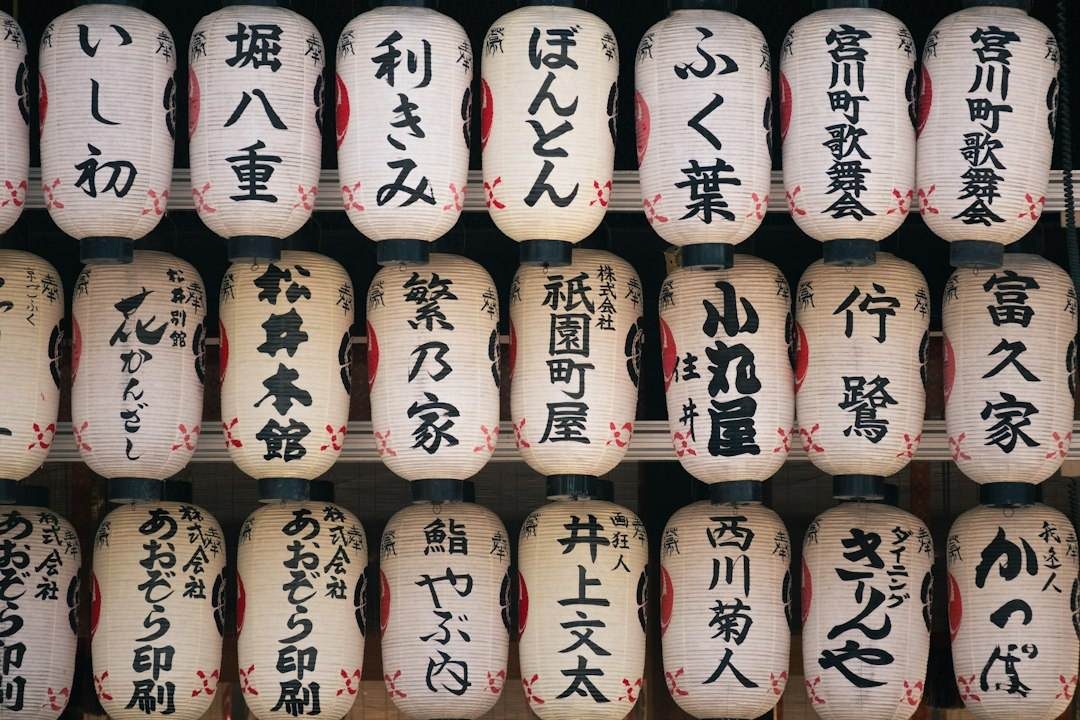 いし初
堀八重
利きみ
ぼんとん
ふく葉
宮川町歌舞会
宮川町歌舞会
京づふく
松井別館
花かんざし
松井本館
繁乃家
株式会社
祇園町屋
小丸屋
住井
佇鷺
富久家
株式会社
あおぞら印刷
株式会社
あおぞら印刷
株式会社
あおぞら印刷
鮨やぶ内
画狂人
井上文太
西川菊人
ダイニング
きりんや
我逢人
かつぱ